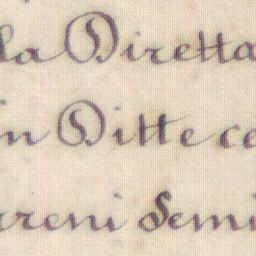 la Diretta
in Ditte ce
rreni Semi